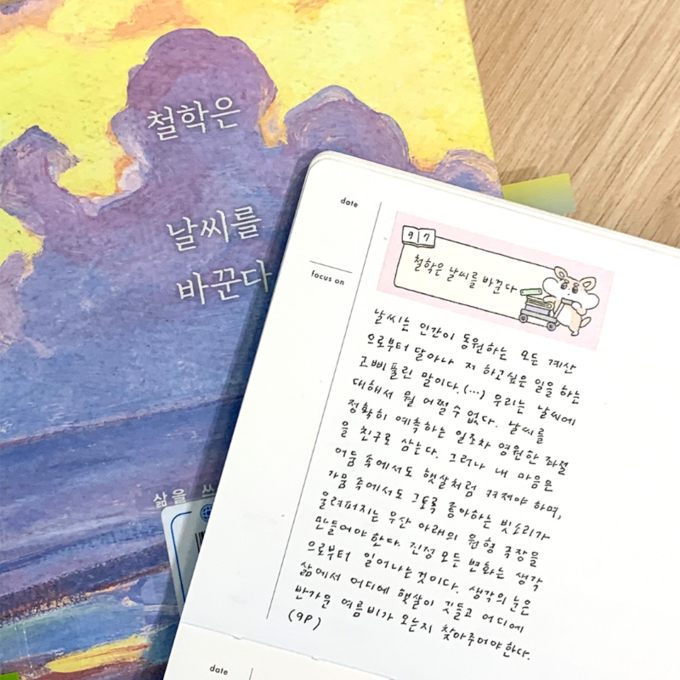 철학은
날씨를
바꾼다
삶을 쓰
date
focus on
9 7
철학은 날씨를 바꾼다
날씨는 인간이 동원하는 모든 계산
으로부터 달아나 저 하고싶은 일을 하는
고삐풀린 말이다.(…) 우리는 날씨에
대해서 뭘 어쩔 수 없다. 날씨를
정확히 예측하는 일조차 영원한 좌절
을 친구로 삼는다. 그러나 내 마음은
어둠 속에서도 햇살처럼 켜져야 하며,
가뭄 속에서도 그토록 좋아하는 빗소리가
울려퍼지는 우산 아래의 원형 극장을
만들어야 한다. 진정 모든 변화는 생각
으로부터 일어나는 것이다. 생각의 눈은
삶에서 어디에 햇살이 깃들고 어디에
반가운 여름비가 오는지 찾아주어야 한다.
(9P)
date